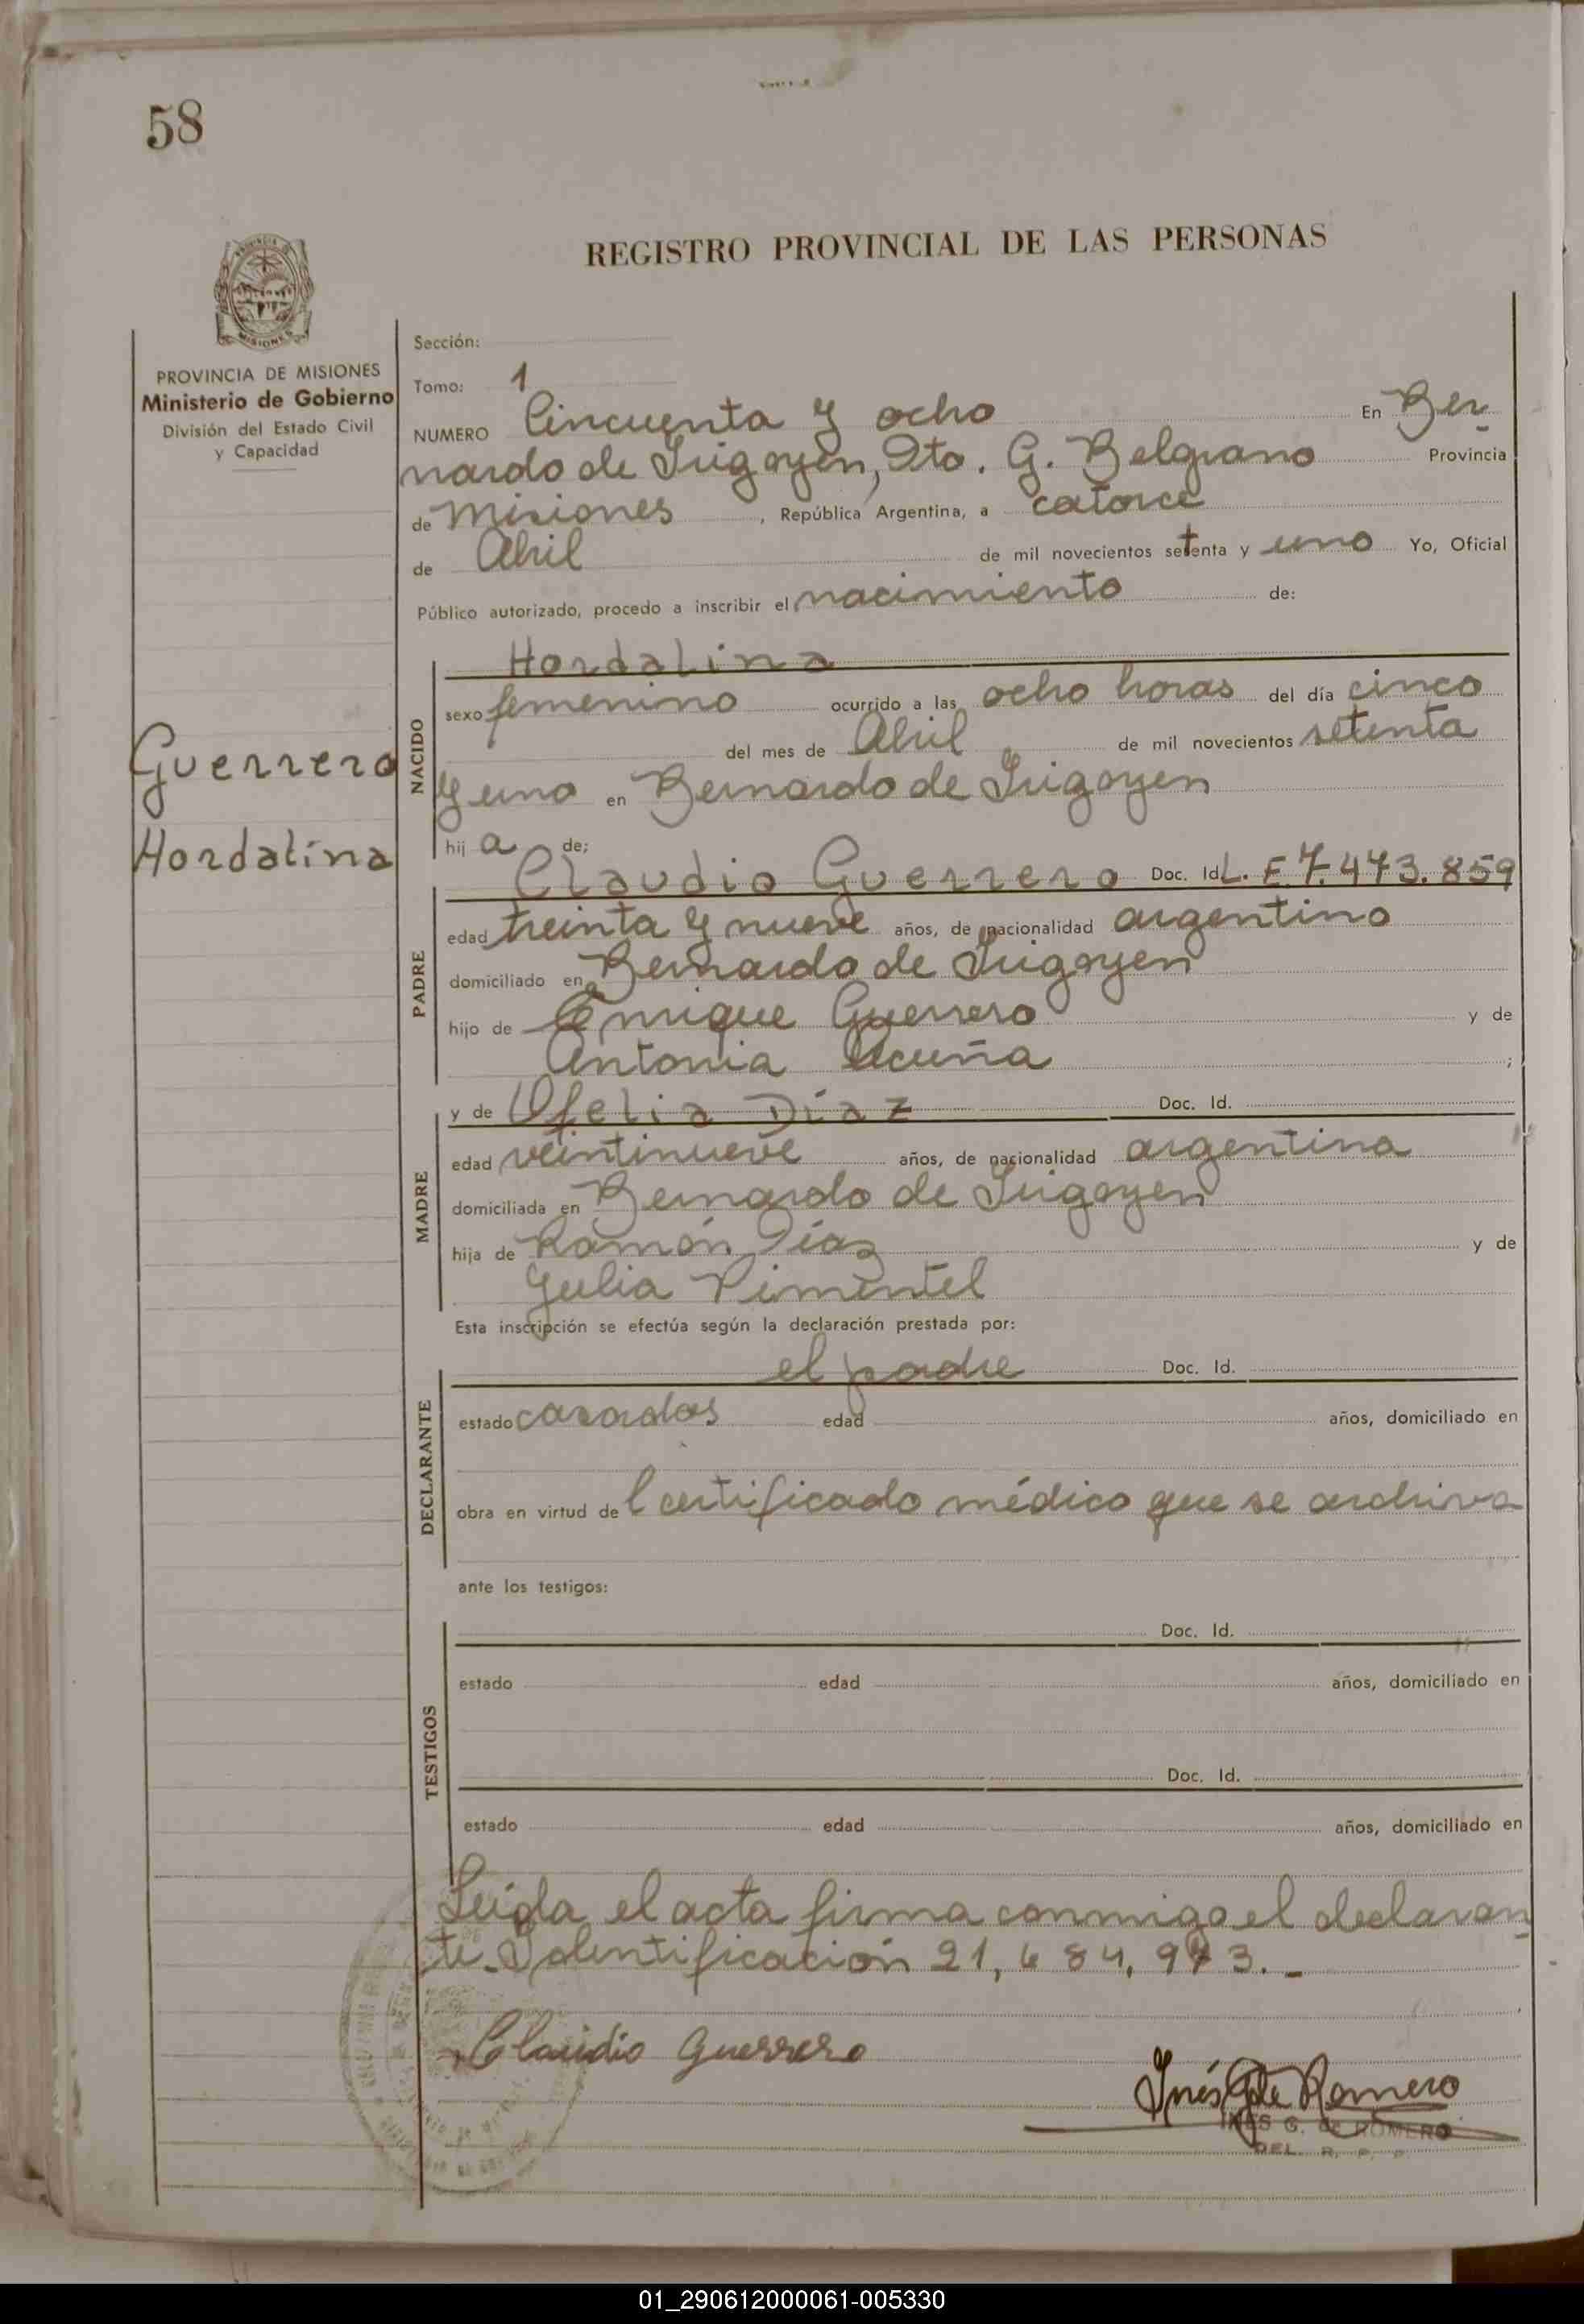 58
REGISTRO PROVINCIAL DE LAS PERSONAS
PROVINCIA DE MISIONES
Ministerio de Gobierno
División del Estado Civil
y Capacidad
Guerrero
Hordalina
Sección:
Tomo: 1
NUMERO Cincuenta y ocho En Ber
nardo de Irigoyen, Dto. G. Belgrano Provincia
de Misiones, República Argentina, a catorce
de Abril de mil novecientos setenta y uno Yo, Oficial
Público autorizado, procedo a inscribir el nacimiento de:
NACIDO
Hordalina
sexo femenino ocurrido a las ocho horas del día cinco
del mes de Abril de mil novecientos setenta
y uno en Bernardo de Irigoyen
hij a de;
PADRE
Claudio Guerrero Doc. Id L. E 7.473.859
edad treinta y nueve años, de nacionalidad argentino
domiciliado en Bernardo de Irigoyen
hijo de Enrique Guerrero y de
Antonia Acuña ;
MADRE
y de Ofelia Díaz Doc. Id.
edad veintinueve años, de nacionalidad argentina
domiciliada en Bernardo de Irigoyen
hija de Ramón Díaz y de
Julia Pimentel
Esta inscripción se efectúa según la declaración prestada por:
DECLARANTE
el padre Doc. Id.
estado casados edad años, domiciliado en
obra en virtud de l certificado médico que se archiva
ante los testigos:
TESTIGOS
Doc. Id.
estado edad años, domiciliado en
Doc. Id.
estado edad años, domiciliado en
Leída el acta firma conmigo el declaran
te. Identificación 21,684,973.-
Claudio Guerrero
Inés G de Romero
INES G. de ROMERO
DEL. R. P. P.
01_290612000061-005330